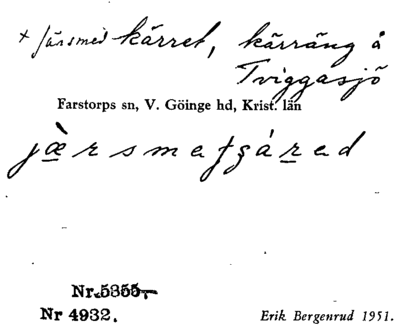 × Järsmed kärret, kärräng å
Tviggasjö
Farstorps sn, V. Göinge hd, Krist. län
Nr 5355
Nr 4932.
Erik Bergenrud 1951.